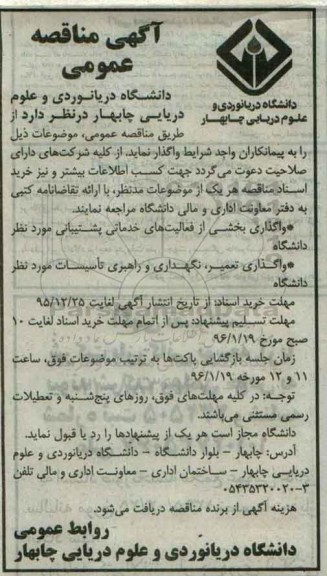 آگهی مناقصه
عمومی
دانشگاه دریانوردی و
علوم دریایی چابهار
دانشگاه دریانوردی و علوم
دریایی چابهار درنظر دارد از
طریق مناقصه عمومی، موضوعات ذیل
را به پیمانکاران واجد شرایط واگذار نماید. از کلیه شرکت‌های دارای
صلاحیت دعوت می‌گردد جهت کسب اطلاعات بیشتر و نیز خرید
اسناد مناقصه هر یک از موضوعات مدنظر، با ارائه تقاضانامه کتبی
به دفتر معاونت اداری و مالی دانشگاه مراجعه نمایند.
*واگذاری بخشی از فعالیت‌های خدماتی پشتیبانی مورد نظر
دانشگاه
*واگذاری تعمیر، نگهداری و راهبری تأسیسات مورد نظر
دانشگاه
مهلت خرید اسناد: از تاریخ انتشار آگهی لغایت ۹۵/۱۲/۲۵
مهلت تسلیم پیشنهاد: پس از اتمام مهلت خرید اسناد لغایت ۱۰
صبح مورخ ۹۶/۱/۱۹
زمان جلسه بازگشایی پاکت‌ها به ترتیب موضوعات فوق، ساعت
۱۱ و ۱۲ مورخه ۹۶/۱/۱۹
توجه: در کلیه مهلت‌های فوق، روزهای پنج‌شنبه و تعطیلات
رسمی مستثنی می‌باشند.
دانشگاه مجاز است هر یک از پیشنهادها را رد یا قبول نماید.
آدرس: چابهار - بلوار دانشگاه - دانشگاه دریانوردی و علوم
دریایی چابهار - ساختمان اداری - معاونت اداری و مالی تلفن
۰۵۴۳۵۳۲۰۰۲۰-۳
هزینه آگهی از برنده مناقصه دریافت می‌شود.
روابط عمومی
دانشگاه دریانوردی و علوم دریایی چابهار